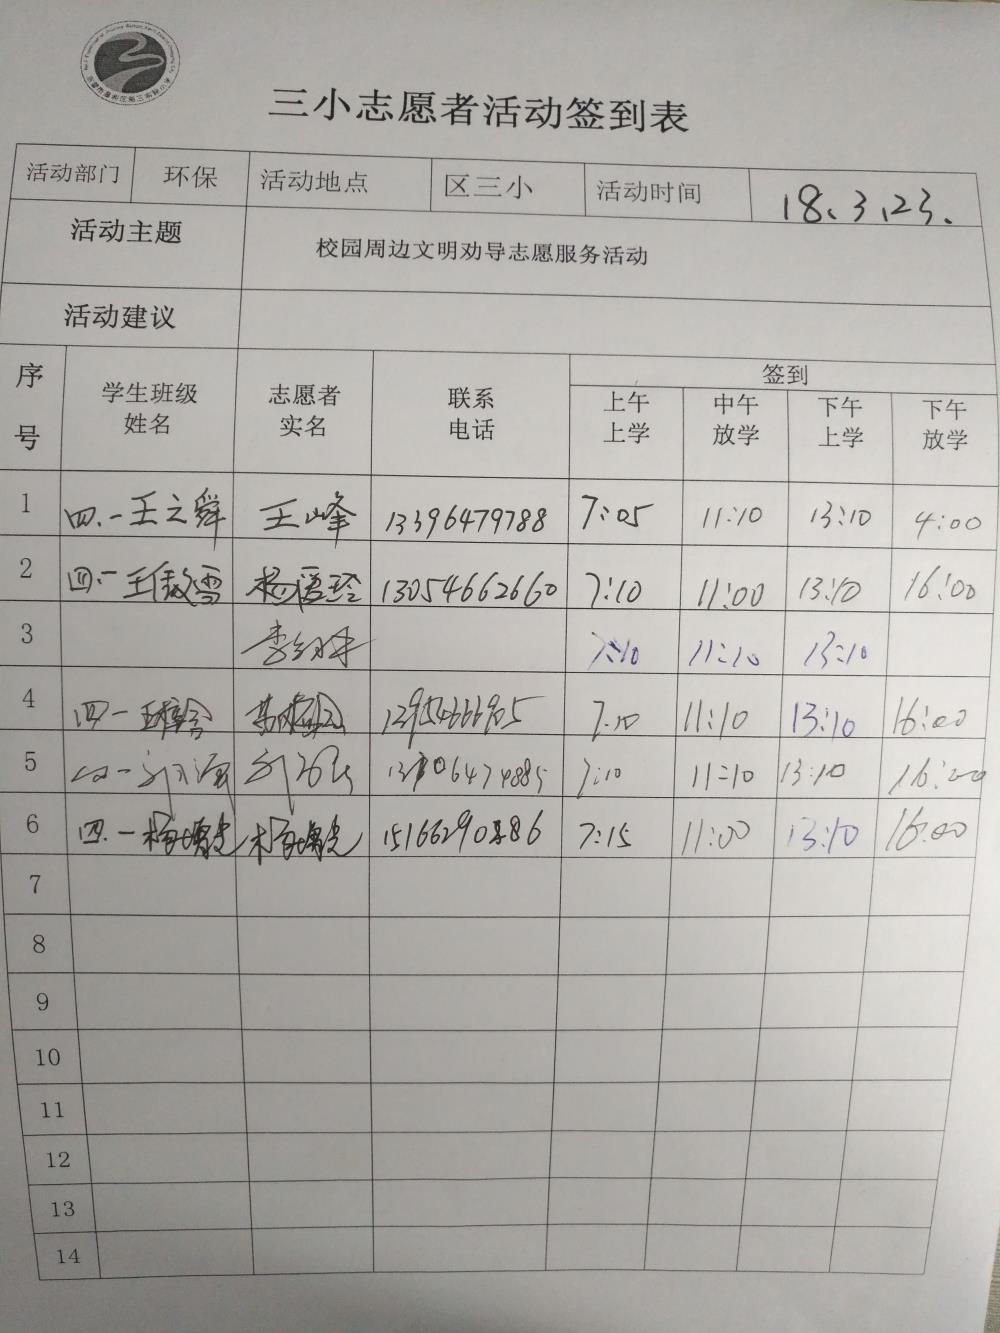 三小志愿者活动签到表
活动部门 环保 活动地点 区三小 活动时间 18.3.23.
活动主题 校园周边文明劝导志愿服务活动
活动建议
序号 学生班级姓名 志愿者实名 联系电话 签到
上午上学 中午放学 下午上学 下午放学
1 四.一王之舜 王峰 13396479788 7:05 11:10 13:10 4:00
2 四.一王傲雪 13054662660 7:10 11:00 13:10 16:00
3 7:10 11:10 13:10
4 四一 7:10 11:10 13:10 16:00
5 四一 7:10 11:10 13:10 16:00
6 四.一杨 杨 7:15 11:00 13:10 16:00
7
8
9
10
11
12
13
14